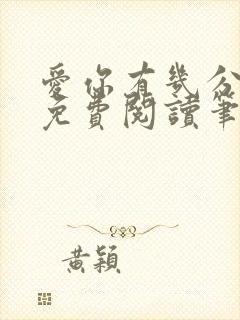 愛你有幾分
免費閱讀筆
黃穎